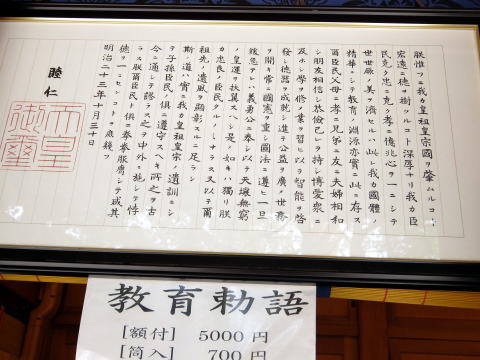 朕惟フニ我カ皇祖皇宗國ヲ肇ムルコト
宏遠ニ德ヲ樹ツルコト深厚ナリ我カ臣
民克ク忠ニ克ク孝ニ億兆心ヲ一ニシテ
世世厥ノ美ヲ濟セルハ此レ我カ國體ノ
精華ニシテ教育ノ淵源亦實ニ此ニ存ス
爾臣民父母ニ孝ニ兄弟ニ友ニ夫婦相和
シ朋友相信シ恭儉己レヲ持シ博愛衆ニ
及ホシ學ヲ修メ業ヲ習ヒ以テ智能ヲ啓
發シ德器ヲ成就シ進テ公益ヲ廣メ世務
ヲ開キ常ニ國憲ヲ重シ國法ニ遵ヒ一旦
緩急アレハ義勇公ニ奉シ以テ天壤無窮
ノ皇運ヲ扶翼スヘシ是ノ如キハ獨リ朕
カ忠良ノ臣民タルノミナラス又以テ爾
祖先ノ遺風ヲ顯彰スルニ足ラン
斯ノ道ハ實ニ我カ皇祖皇宗ノ遺訓ニシ
テ子孫臣民ノ俱ニ遵守スヘキ所之ヲ古
今ニ通シテ謬ラス之ヲ中外ニ施シテ悖
ラス朕爾臣民ト俱ニ拳拳服膺シテ咸其
德ヲ一ニセンコトヲ庶幾フ
明治二十三年十月三十日
睦仁
天皇
御璽
教育勅語
[額付] 5000円
[筒入] 700円